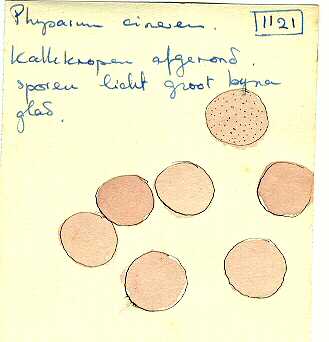 Physarum cinerea. 1121
Kalkknopen afgerond.
sporen licht groot bijna
glad.